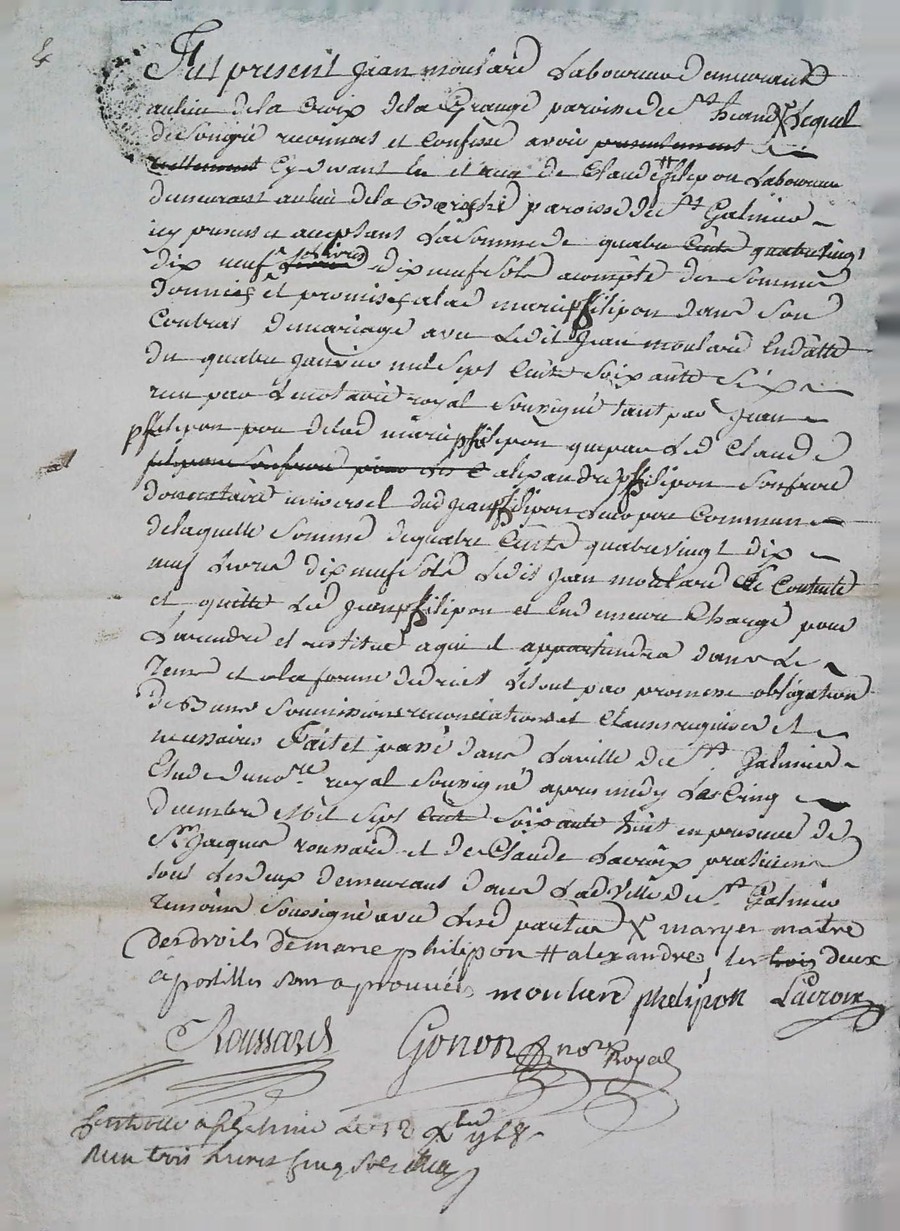 Fut present Jean moulard Laboureur Demeurant
au lieu de la Croix de la Grange paroisse de St heand X Lequel
de Son gré reconnoit et Confesse avoir presentement
reellement Cy devant eu et reçu de Claude # filipon Laboureur
demeurant au lieu de la paroisse de St Galmier
icy present et acceptant La Somme de quatre Cents quatre vingt
dix neuf livres dix neuf Sols acompte des Sommes
donnéés et promiséés a lad marie phelipon dans Son
Contrat de mariage avec Ledit Jean moulard En datte
du quatre Janvier mil Sept Cents Soixante Six
reçu par Le notaire royal Soussigné tant par Jean
phelipon pere de lad marie phelipon que par Led Claude
filipon Son frere alexandre phelipon Son frere
donnataire universel dud Jean phelipon Leur pere Commun
de laquelle Somme de quatre Cents quatre vingt dix
neuf Livres dix neuf Sols Ledit Jean moulard Se Contente
et quitte Led Jean phelipon et En demeure Chargé pour
La rendre et restituer a qui il appartiendra dans Le
Tems et a la forme de droit Le tout par promesse obligation
de Biens Soumissions renonciations et Clauses requises et
necessaires Fait et passé dans La ville de St Galmier
Etude du nore royal Soussigné apres midy Le Cinq
decembre Mil Sept Cent Soixante huit en presence de
Sr Jacques roussard et de Claude Lacroix praticiens
tous Les deux demeurants dans Lad Ville de St Galmier
temoins Soussignés avec Lesd parties X mary et maitre
des droits de marie philipon # alexandre, les trois deux
apostilles sont aprouvées moulard phelipon Lacroix
Roussard Gonon nore Royal
Controllé a St Galmier Le 12 Xbre 1768
Reçu trois livres Cinq Sols